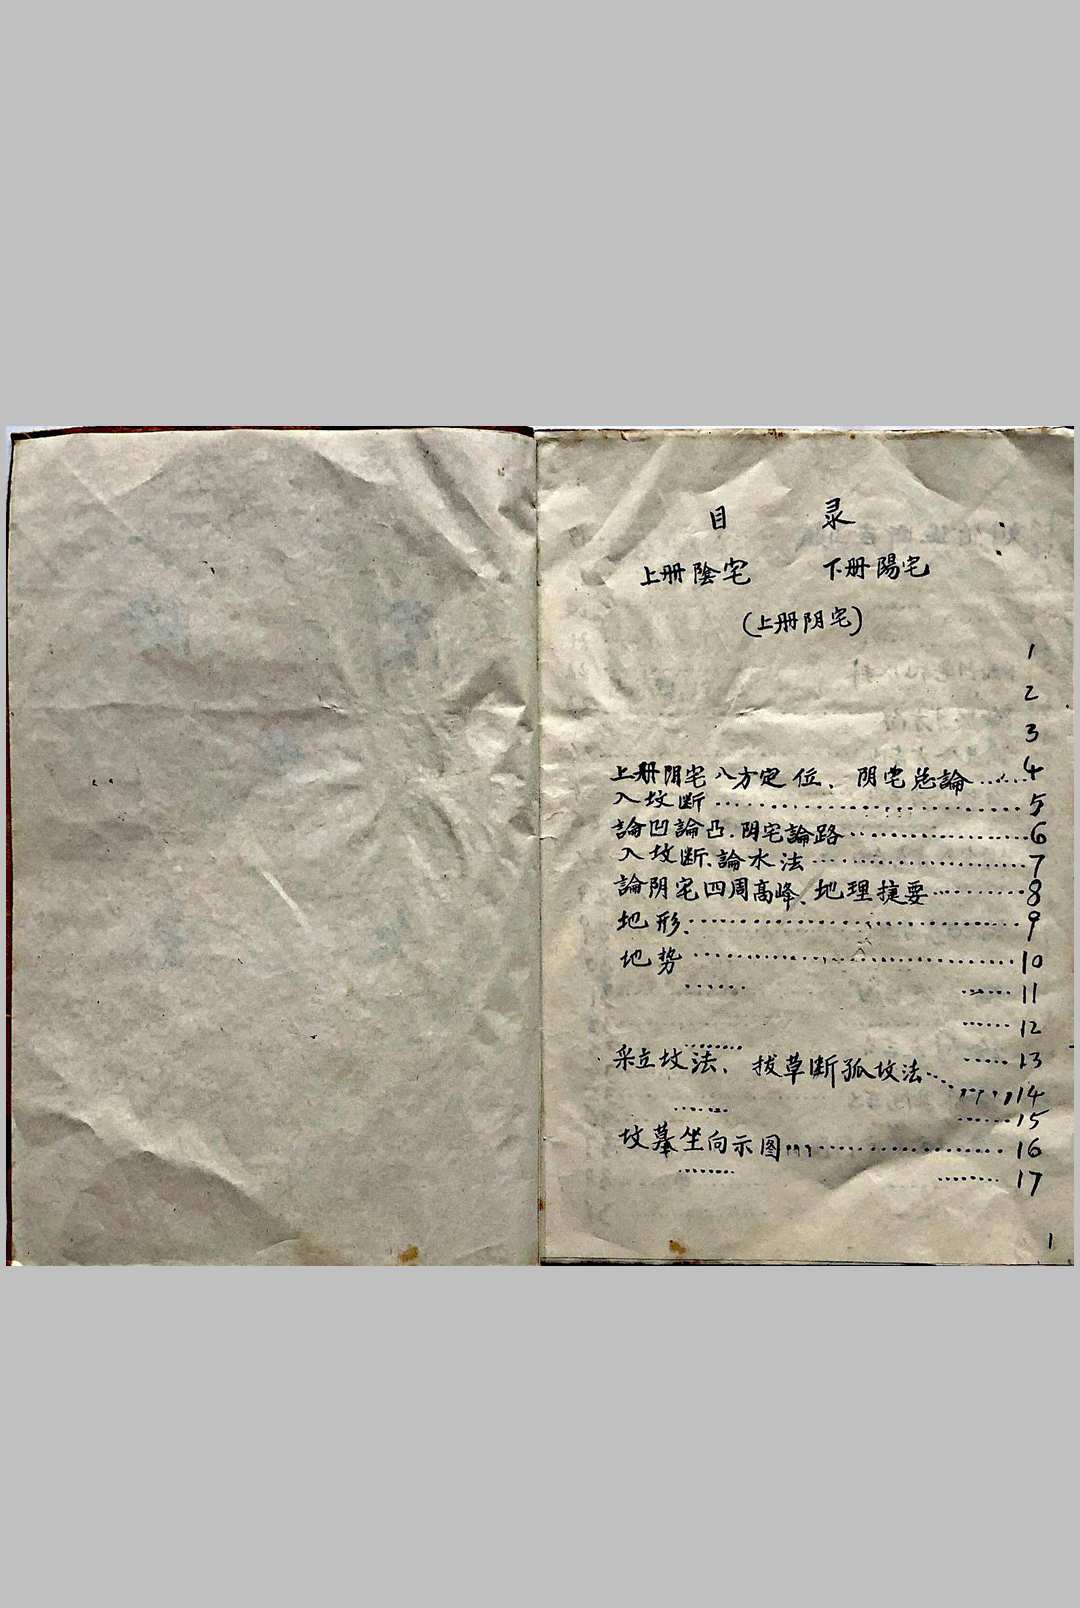 目 录
上册陰宅 下册陽宅
(上册阴宅)
1
2
3
上册阴宅八方定位、阴宅总論……4
入坟断………………5
論凹論凸.阴宅論路………………6
入坟断、論水法………………7
論阴宅四周高峰、地理捷要………8
地形.………………9
地势………………10
…… ……11
……12
…… ……13
采立坟法、拔草断孤坟法………14
…… ……15
坟墓坐向示图………………16
…… ……17
1